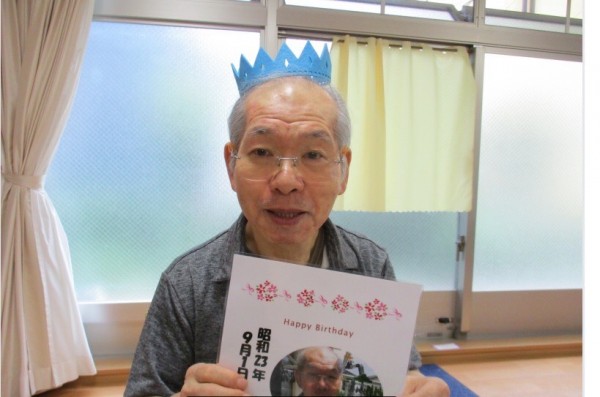 Happy Birthday
昭和23年
9月1日